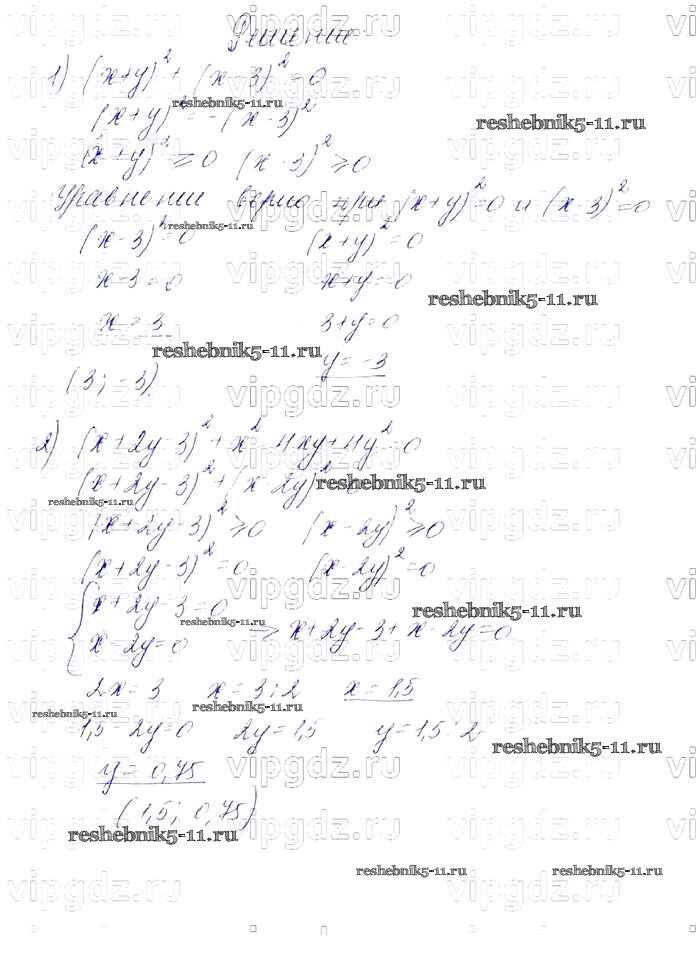 Решение
1) (x+y)² + (x-3)² = 0
(x+y)² = -(x-3)²
(x+y)² ≥ 0 (x-3)² ≥ 0
Уравнении верно при (x+y)²=0 и (x-3)²=0
(x-3)²=0 (x+y)²=0
x-3=0 x+y=0
x=3 3+y=0
y=-3
(3; -3)
2) (x+2y-3)² + x²-4xy+4y²=0
(x+2y-3)² + (x-2y)²=0
(x+2y-3)² ≥ 0 (x-2y)² ≥ 0
(x+2y-3)²=0 (x-2y)²=0
{x+2y-3=0
x-2y=0 => x+2y-3+x-2y=0
2x=3 x=3:2 x=1,5
1,5-2y=0 2y=1,5 y=1,5:2
y=0,75
(1,5; 0,75)
vipgdz.ru
reshebnik5-11.ru